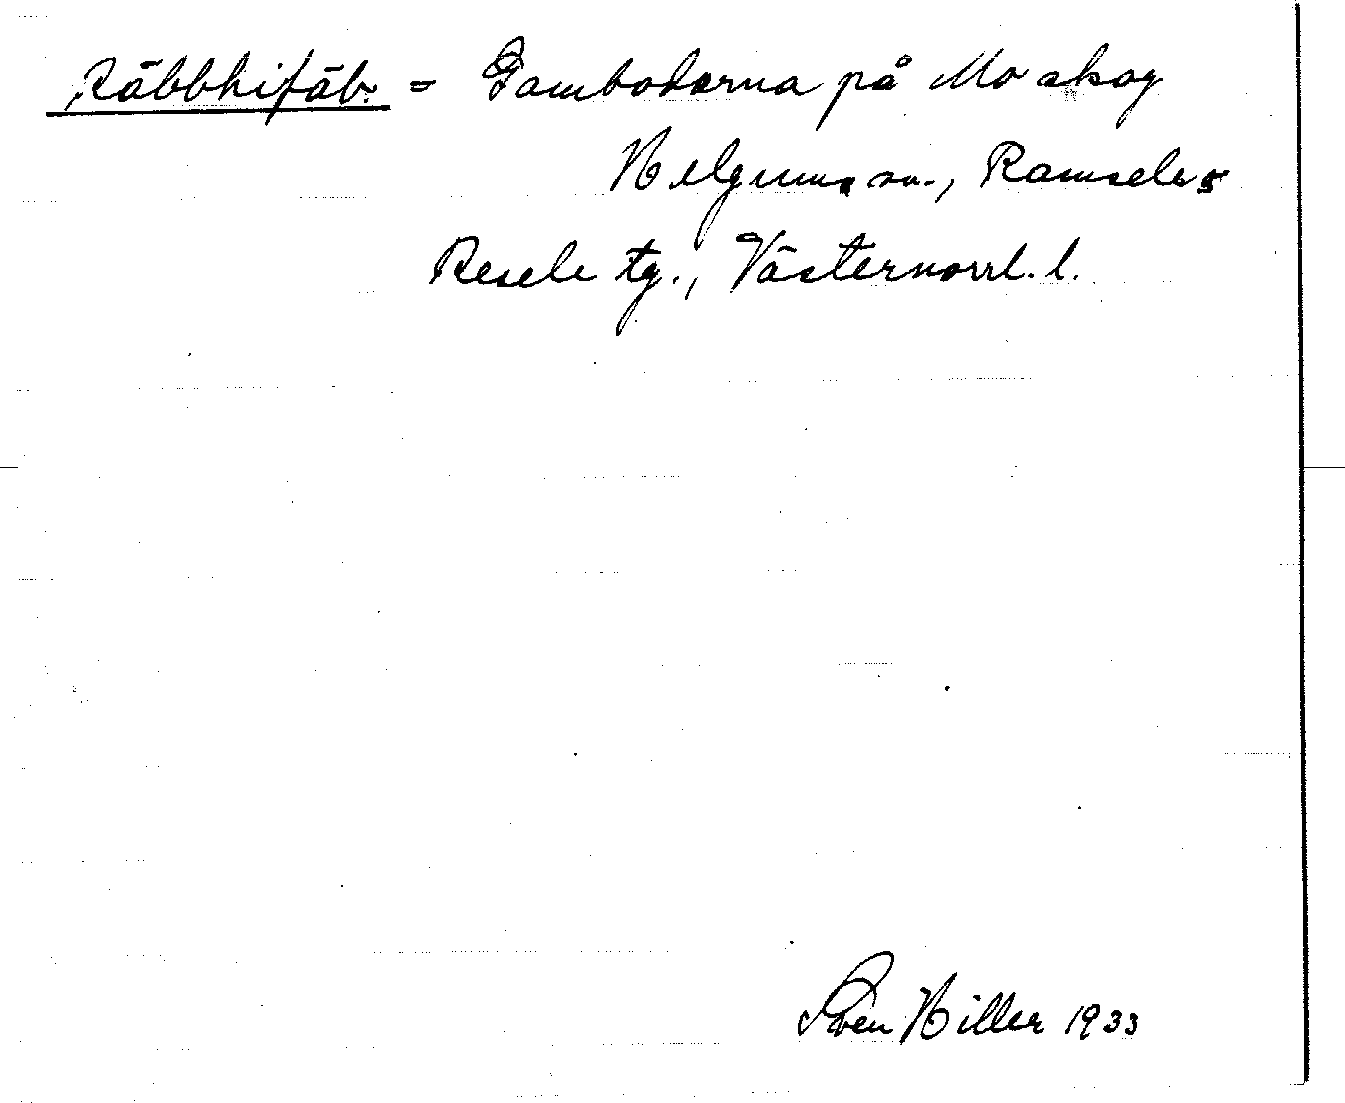 Räbbhifäb. = Gambodarna på Mo skog
Helgums sn., Ramsele o
Resele tg., Västernorrl. l.
Sven Hiller 1933